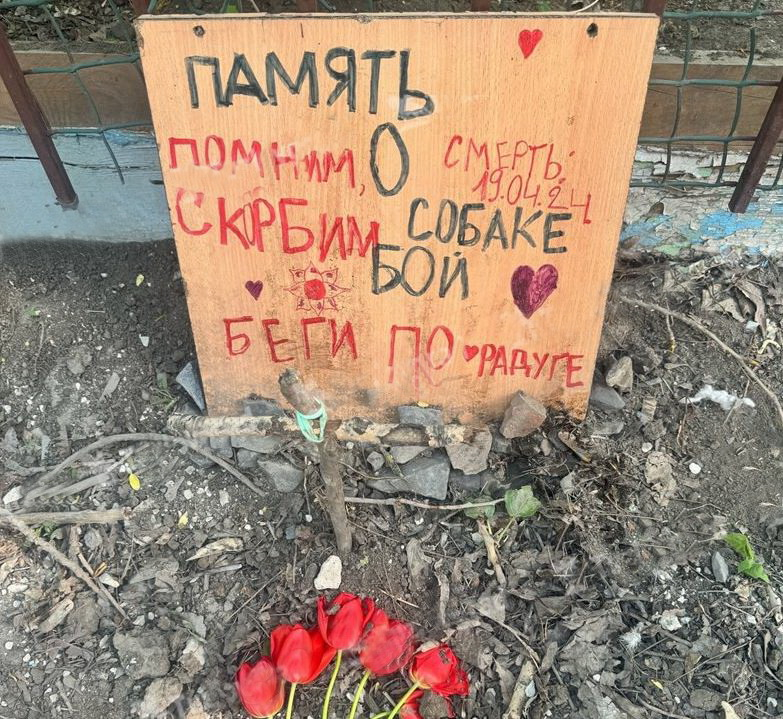 ПАМЯТЬ
О
СОБАКЕ
БОЙ
ПОМНИМ,
СКОРБИМ
СМЕРТЬ:
19.04.24
БЕГИ ПО РАДУГЕ